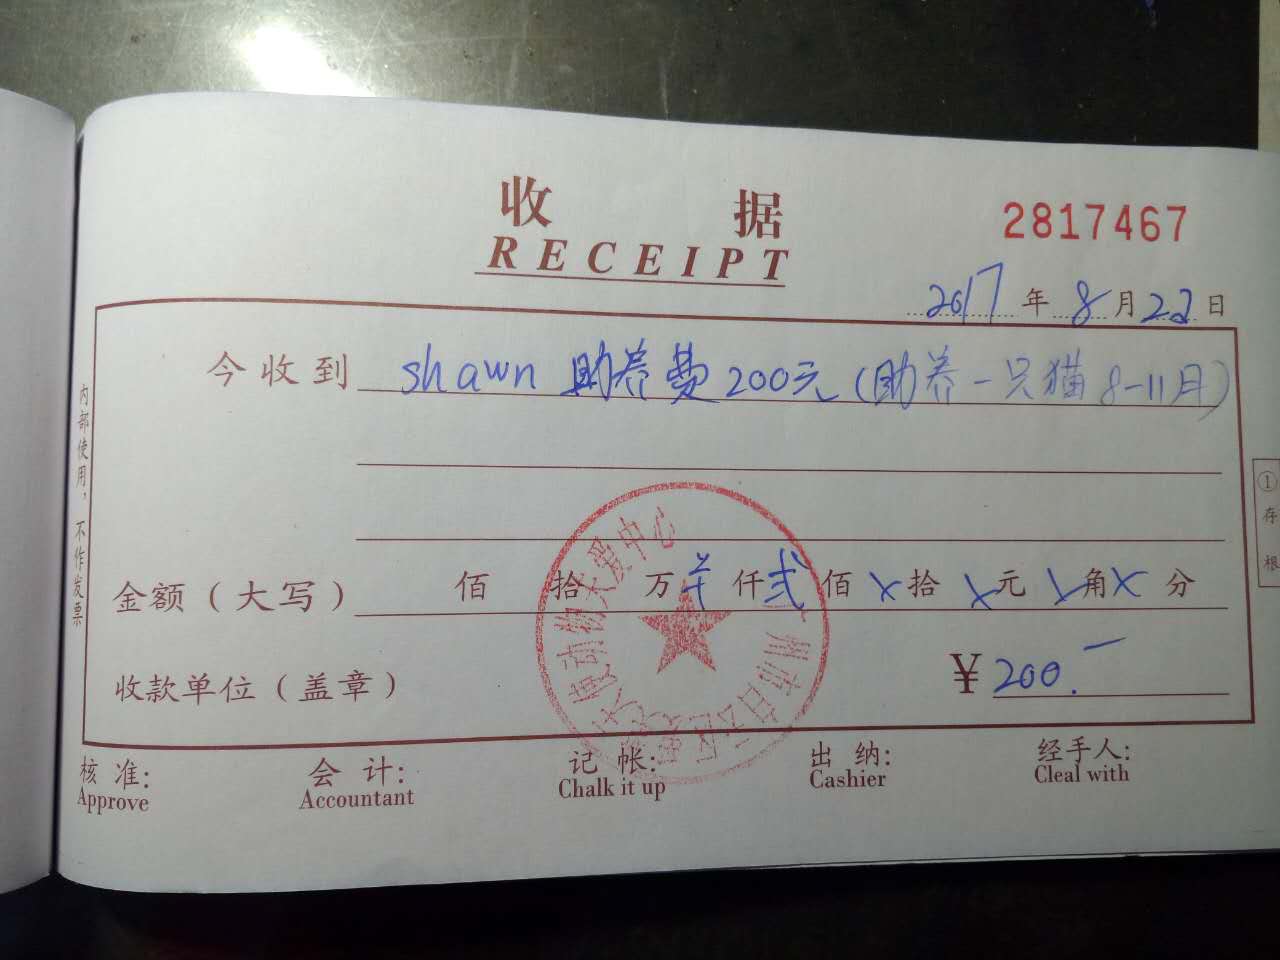 收 据
RECEIPT
2817467
2017 年 8 月 22 日
今收到 shawn 助养费 200元 (助养一只猫 8-11月)
金额(大写) 佰 拾 万 仟 贰 佰 × 拾 × 元 × 角 × 分
收款单位(盖章)
¥ 200.-
核准: 会计: 记帐: 出纳: 经手人:
Approve Accountant Chalk it up Cashier Cleal with
内部使用,不作发票
① 存根
动物大爱中心
州市白云区